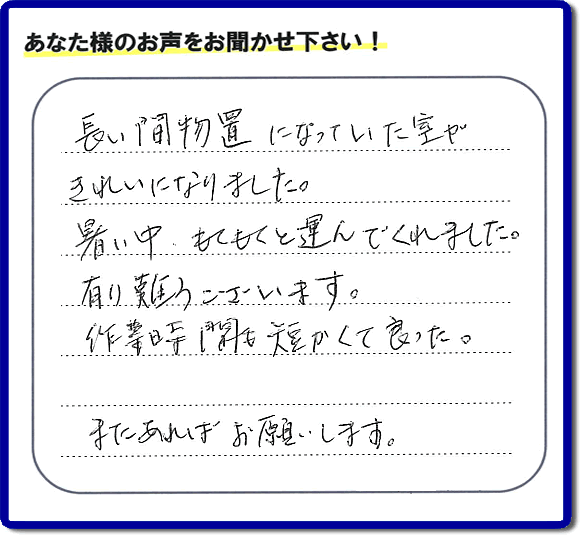 あなた様のお声をお聞かせ下さい！
長い間物置になっていた室が
きれいになりました。
暑い中、もくもくと運んでくれました。
有り難うございます。
作業時間も短かくて良った。
またあればお願いします。